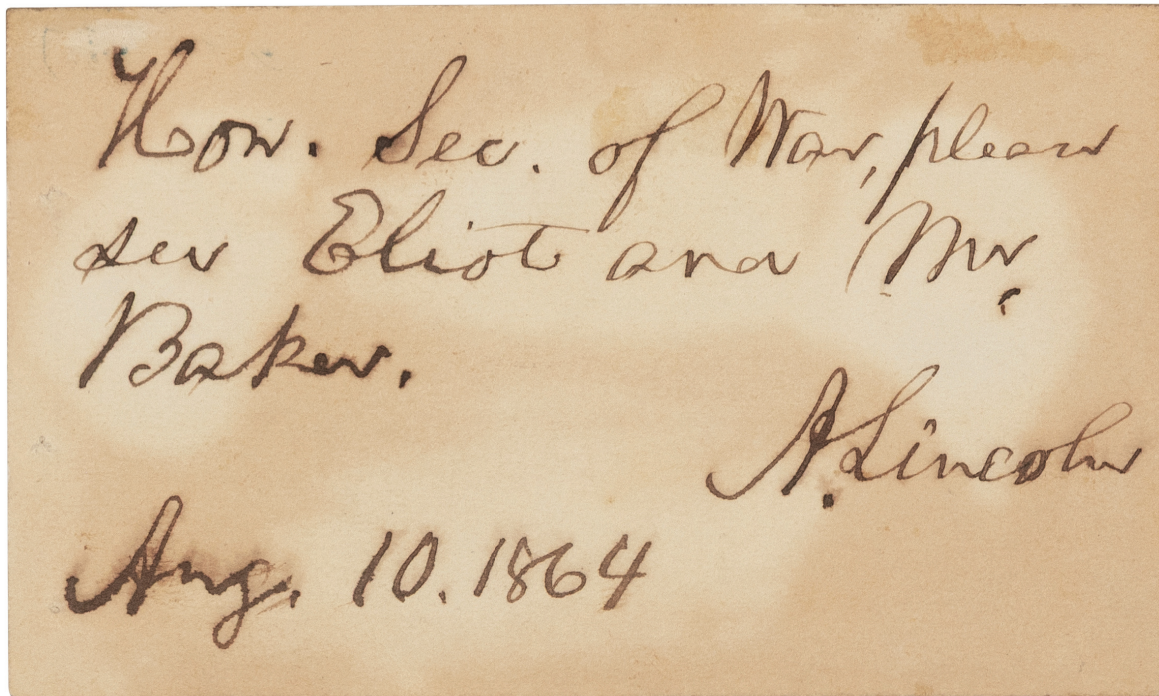 Hon. Sec. of War, please
see Eliot and Mr.
Baker.
A. Lincoln
Aug. 10. 1864